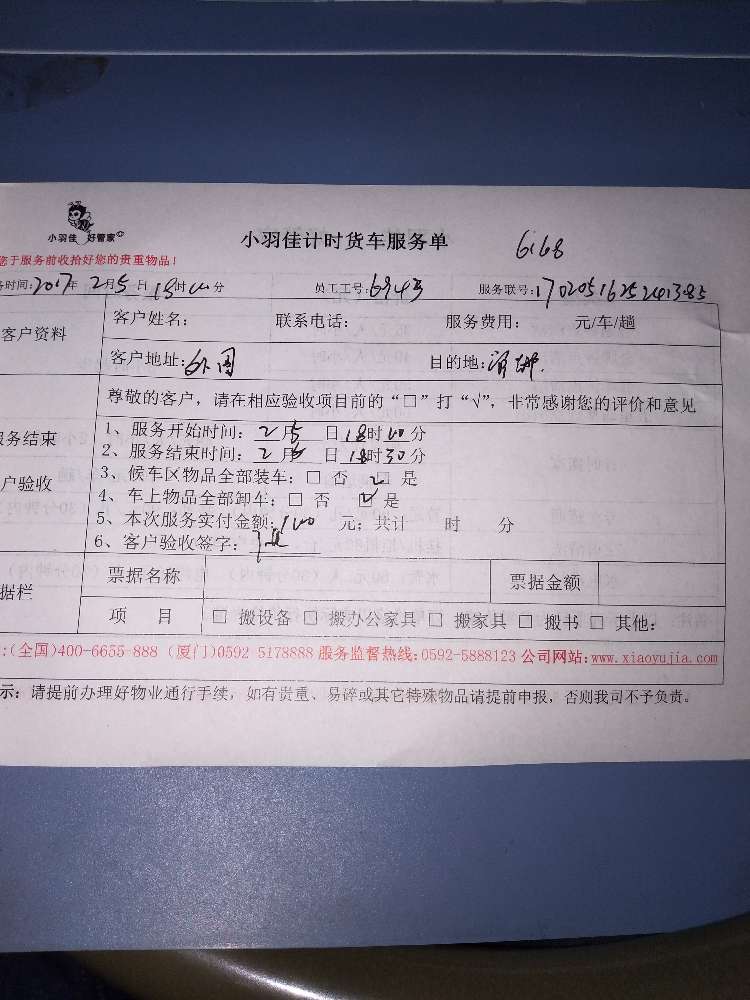 小羽佳 好管家
小羽佳计时货车服务单 6168
您于服务前收拾好您的贵重物品!
务时间:2017年 2月5日 18时00分 员工工号:6943 服务联号:1702051625241385
客户资料 客户姓名: 联系电话: 服务费用: 元/车/趟
客户地址:外图 目的地:
尊敬的客户,请在相应验收项目前的“□”打“√”,非常感谢您的评价和意见
服务结束
户验收
1、服务开始时间: 2月5日18时00分
2、服务结束时间: 2月5日18时30分
3、候车区物品全部装车:□ 否 ☑ 是
4、车上物品全部卸车:□ 否 ☑ 是
5、本次服务实付金额:100 元;共计 时 分
6、客户验收签字:
据栏 票据名称 票据金额
项 目 □ 搬设备 □ 搬办公家具 □ 搬家具 □ 搬书 □ 其他:
:(全国)400-6655-888 (厦门)0592 5178888 服务监督热线:0592-5888123 公司网站:www.xiaoyujia.com
示:请提前办理好物业通行手续,如有贵重、易碎或其它特殊物品请提前申报,否则我司不予负责。